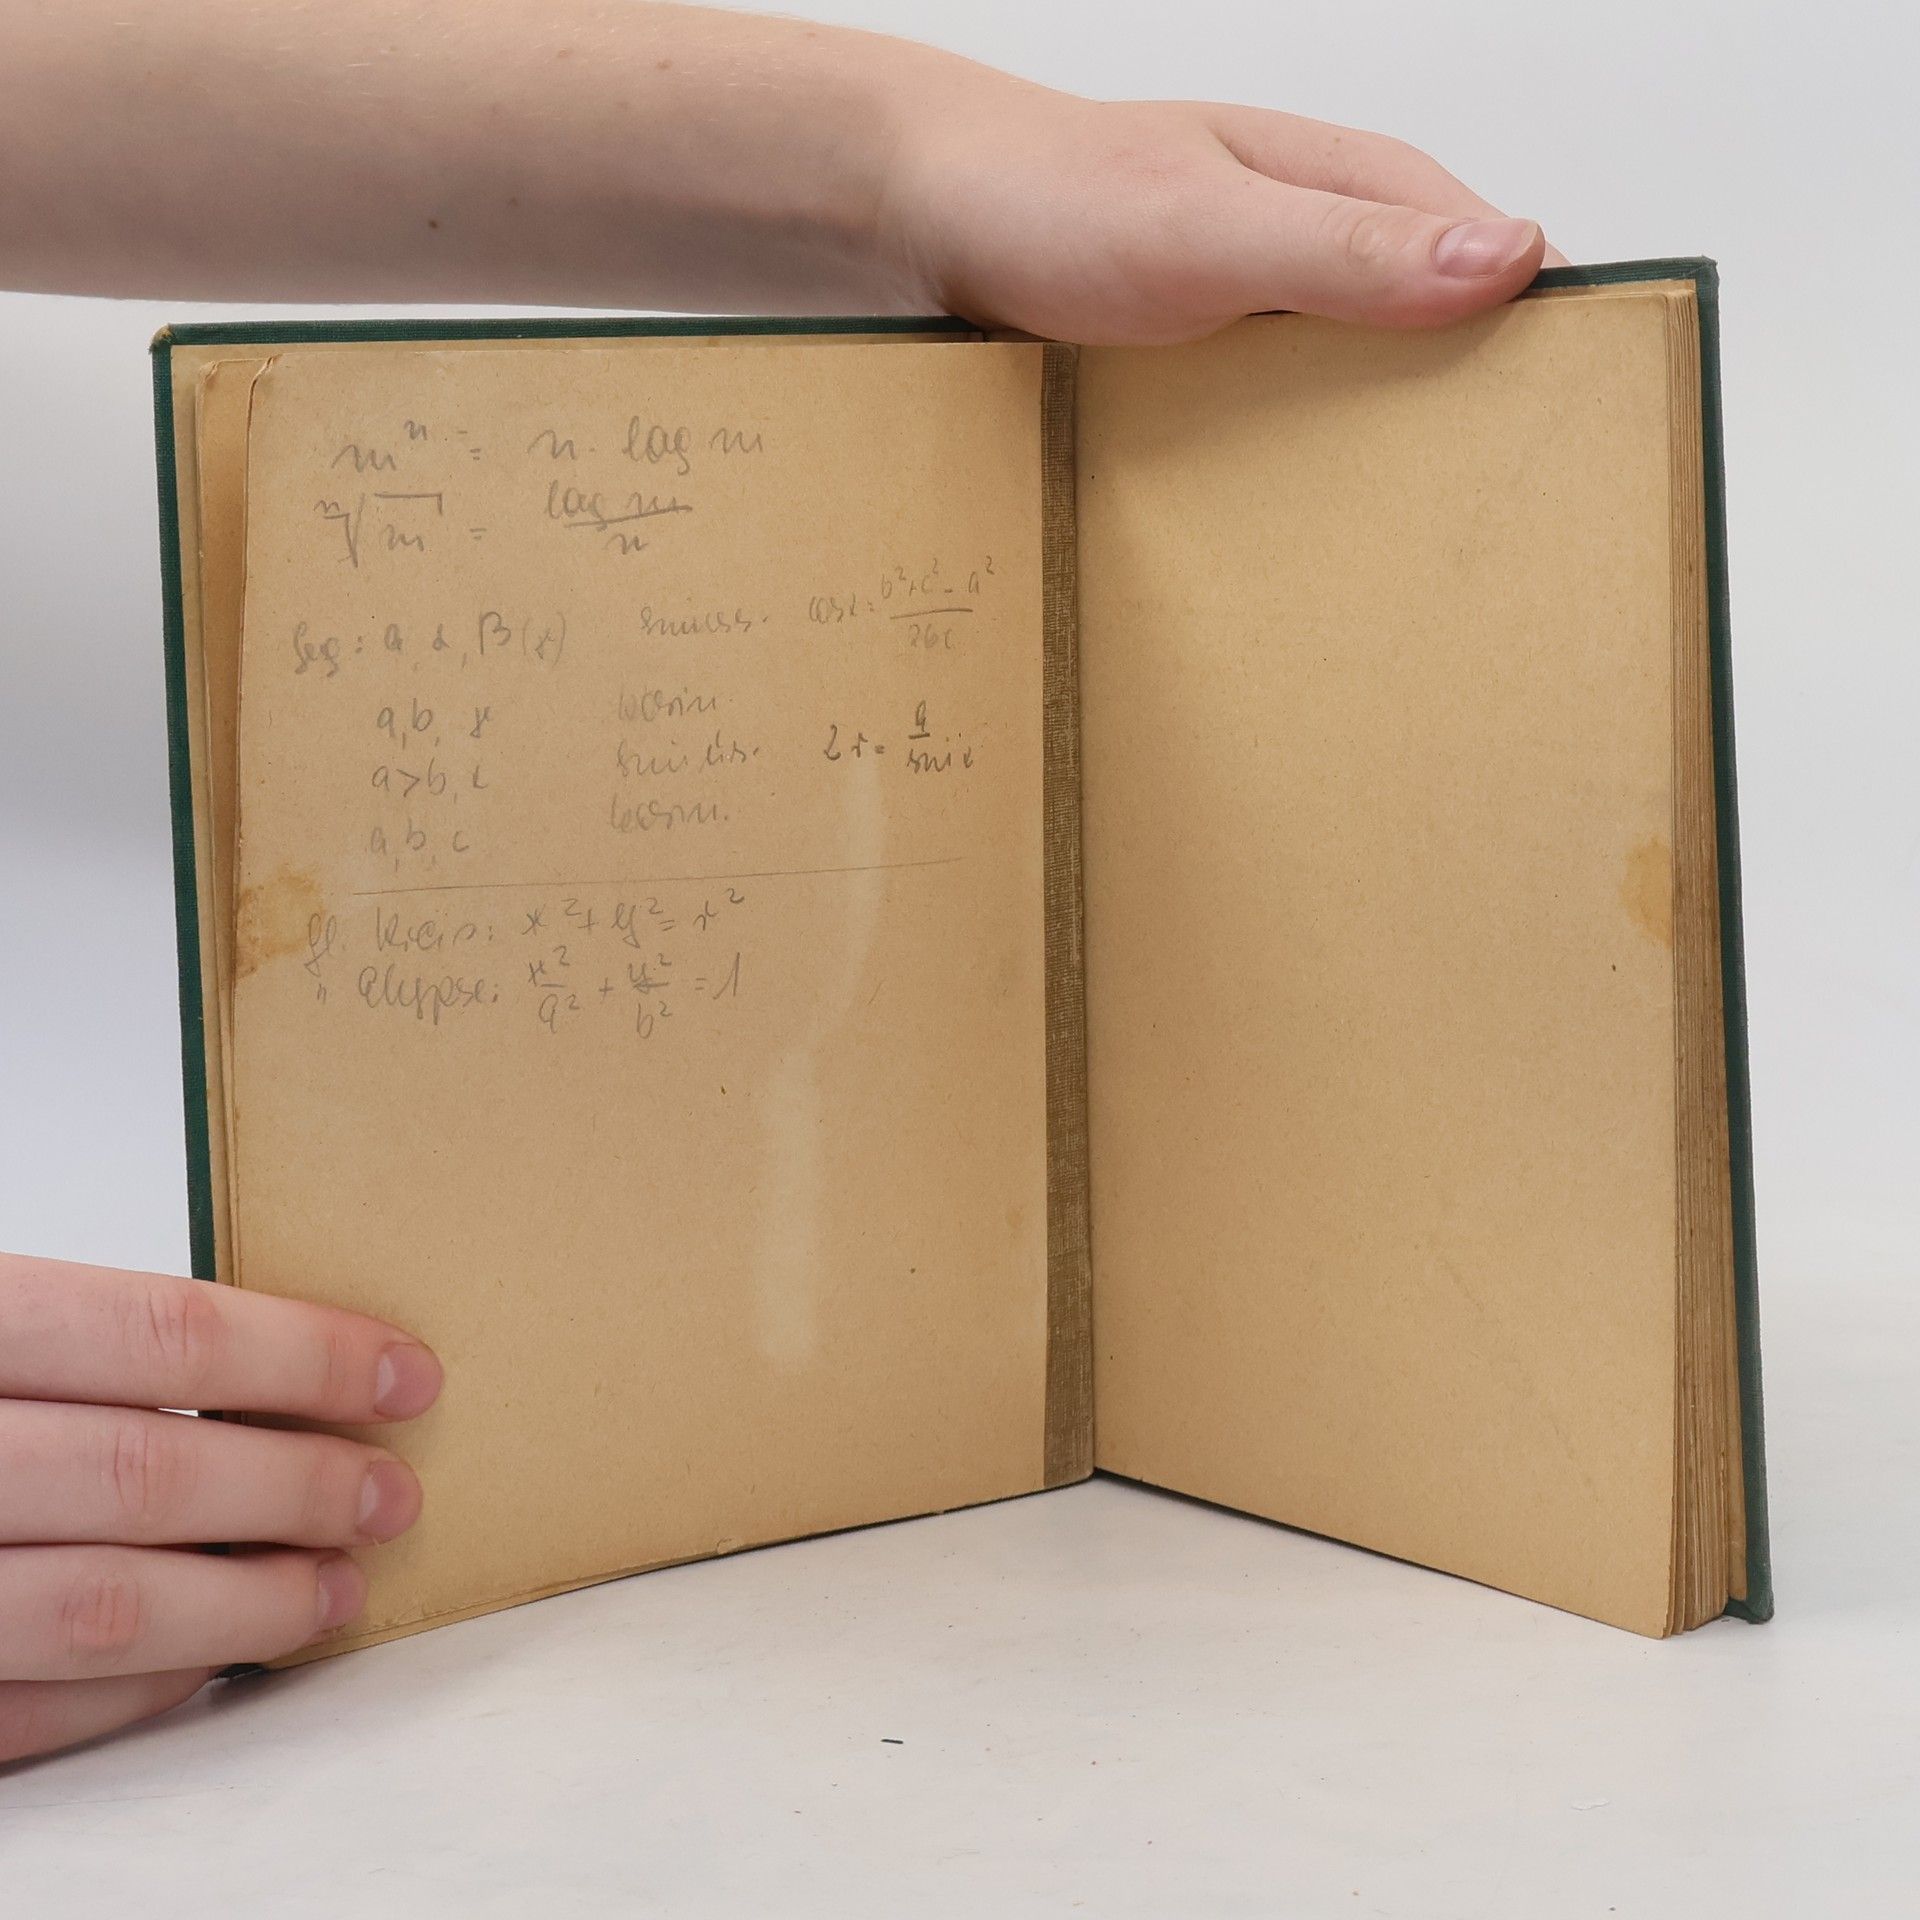 mⁿ = n · log m
ⁿ√m = log m / n
geg: a, α, β (γ) sinuss. cos α = b² + c² - a² / 2bc
a, b, γ kosin.
a > b, α sinuss. 2r = a / sin α
a, b, c kosin.
gl. Kreis: x² + y² = r²
" Elypse: x²/a² + y²/b² = 1